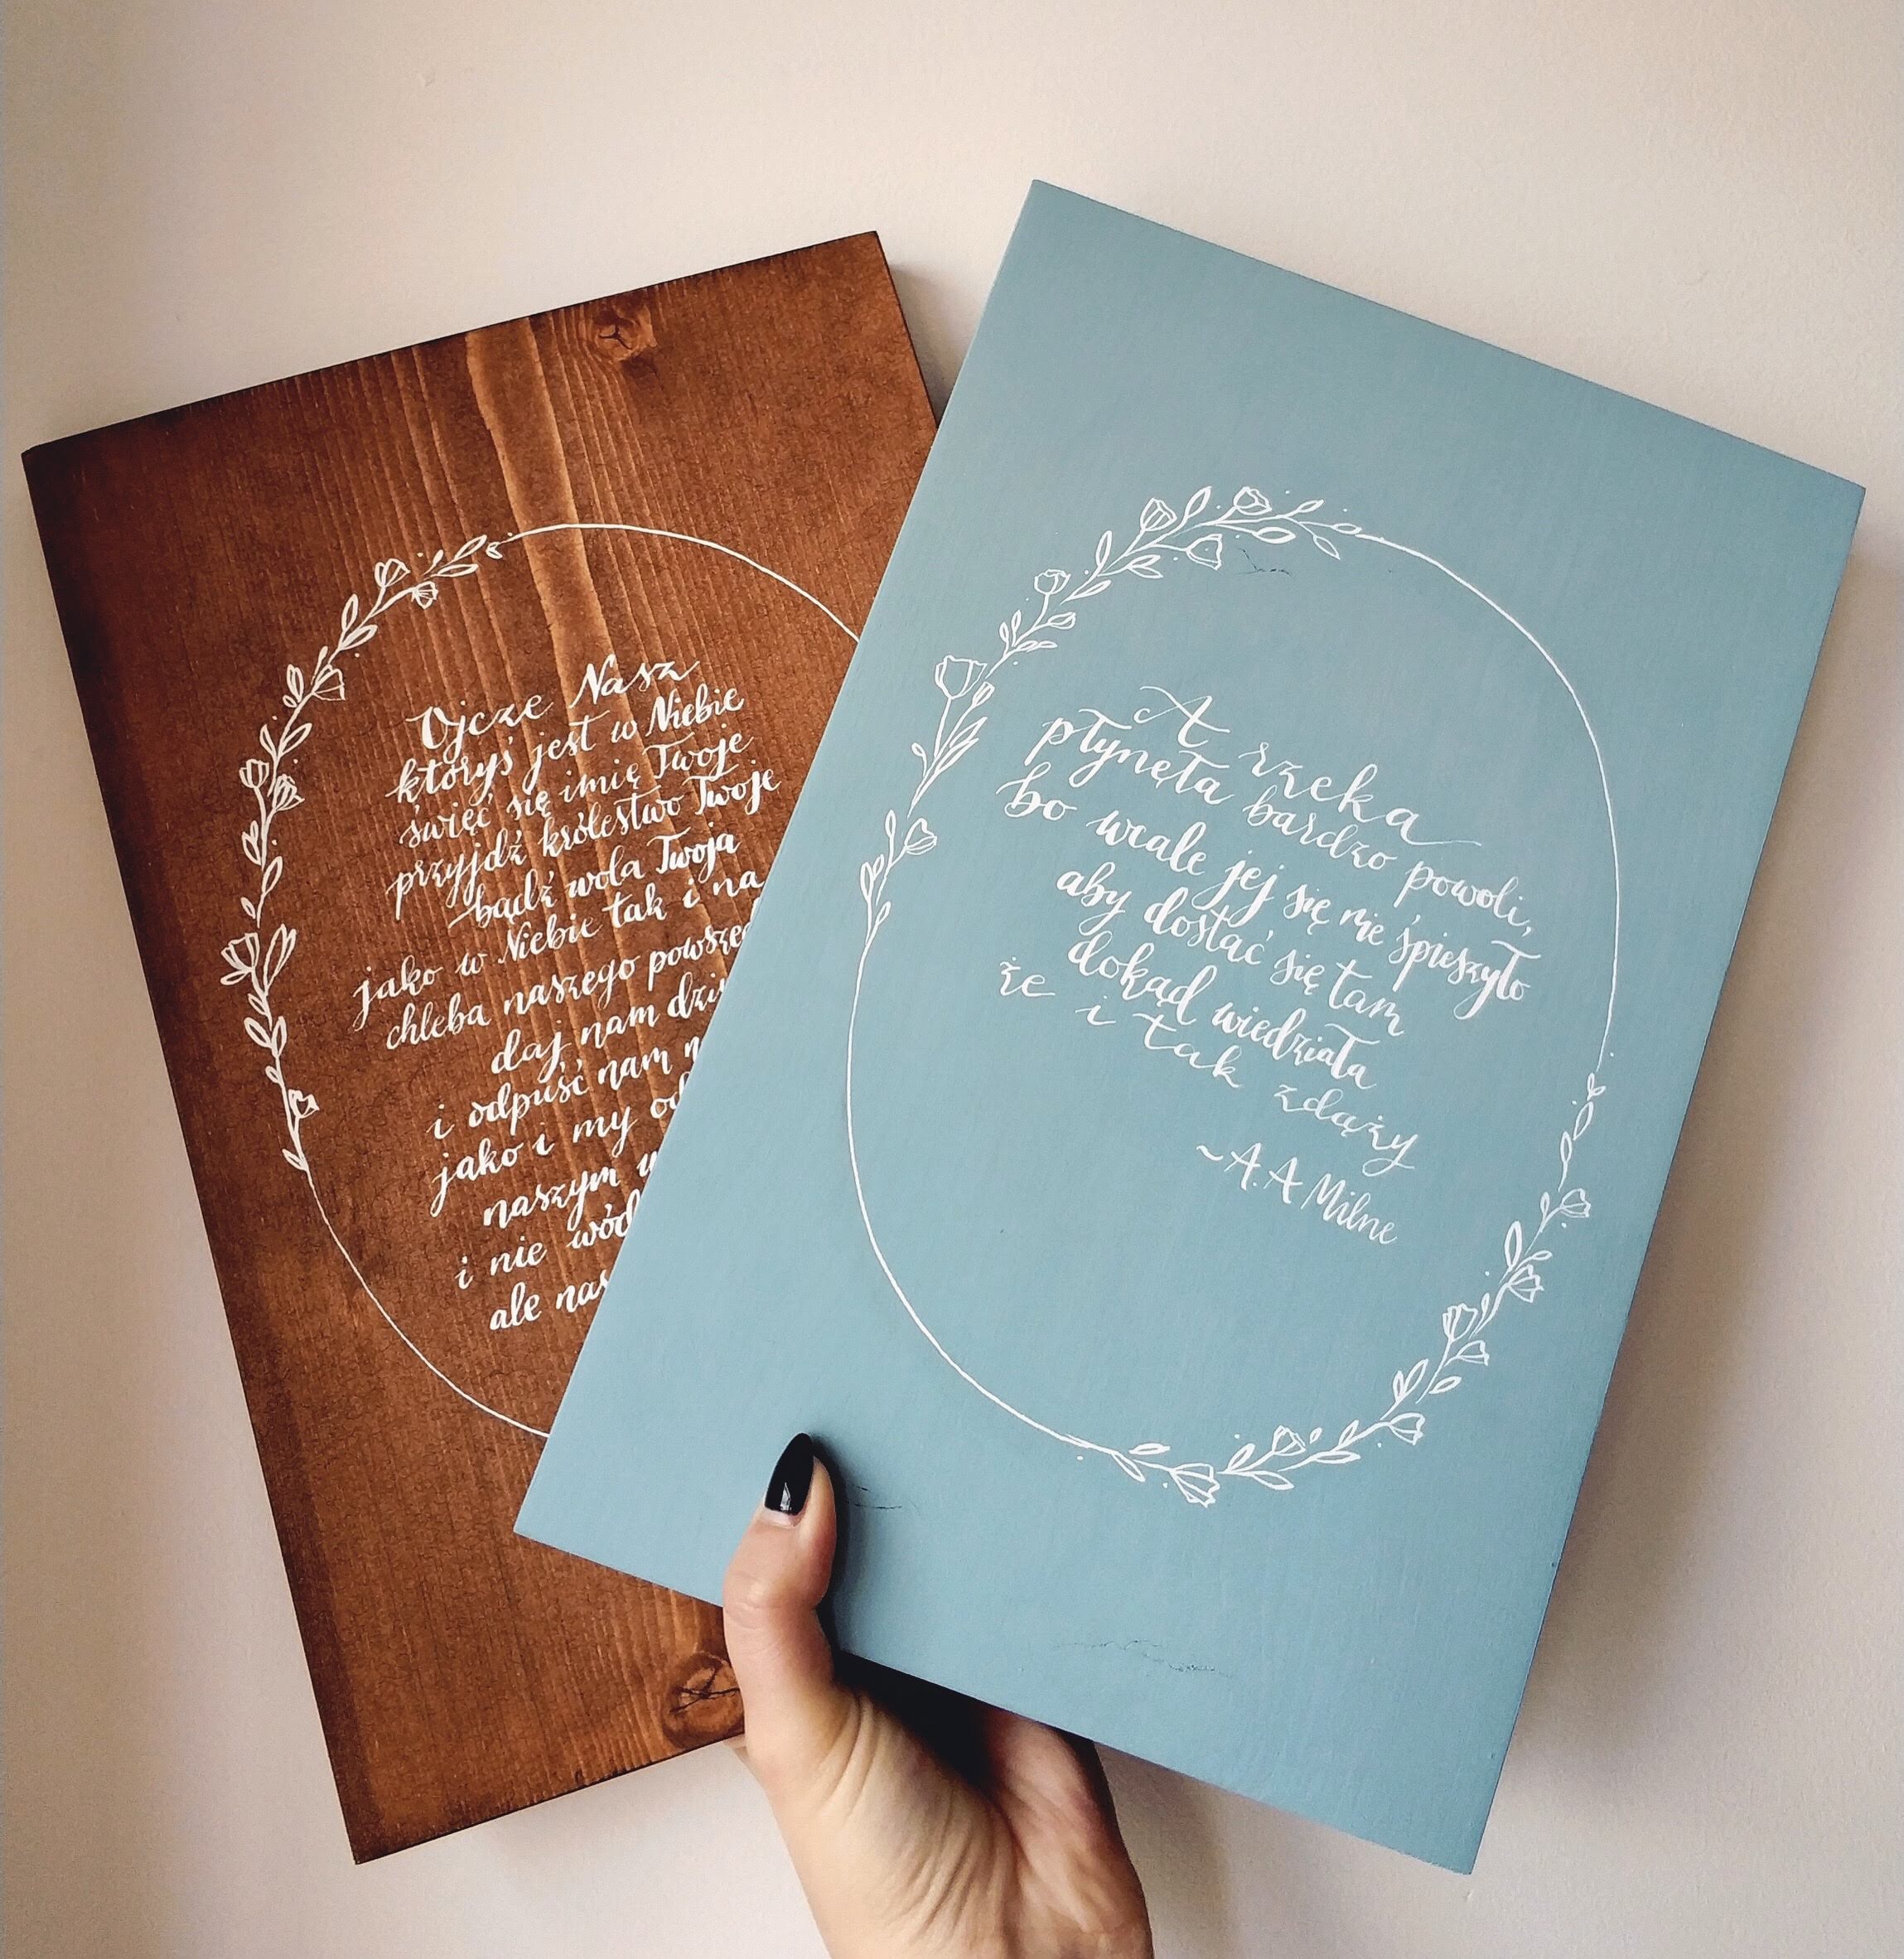 Ojcze Nasz
któryś jest w Niebie
święć się imię Twoje
przyjdź królestwo Twoje
bądź wola Twoja
jako w Niebie tak i na
chleba naszego
daj nam
i odpuść nam
jako i my
naszym
i nie
ale
A rzeka
płynęła bardzo powoli,
bo wcale jej się nie śpieszyło
aby dostać się tam
dokąd wiedziała
że i tak zdąży
~A.A Milne